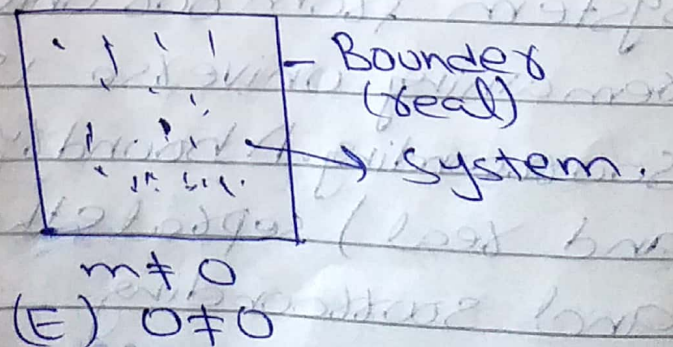 Bounder
(real)
System.
m ≠ 0
(E) 0 ≠ 0